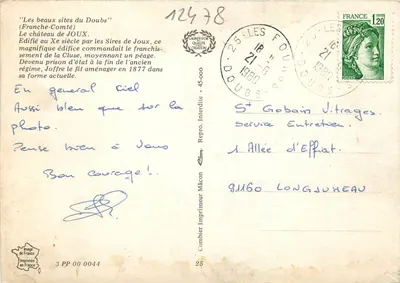 12478
"Les beaux sites du Doubs"
(Franche-Comté)
Le château de JOUX.
Edifié au Xe siècle par les Sires de Joux, ce
magnifique édifice commandait le franchis-
sement de la Cluse, moyennant un péage.
Devenu prison d'état à la fin de l'ancien
régime, Joffre le fit aménager en 1877 dans
sa forme actuelle.
En general ciel
Aussi bleu que sur la
photo.
Pense bien à vous
Bon courage!
Combier Imprimeur Mâcon
Repro. Interdite - 45-000
25 - LES FOU
DOUBS
18
21
1980
FRANCE
1,20
St Gobain Vitrages.
Service Entretien.
1 Allée d'Effiat.
91160 LONGJUMEAU
Image
de France
Imprimée
en France
3 PP 00 0044
25